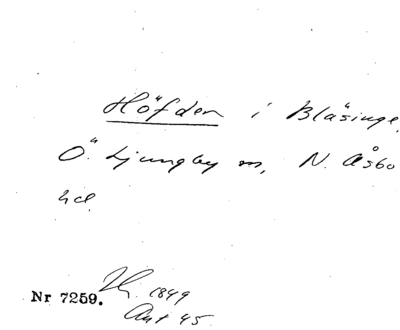 Höfden i Bläsinge,
Ö. Ljungby sn, N. Åsbo
hd.
1849
Nr 7259. Ant 45